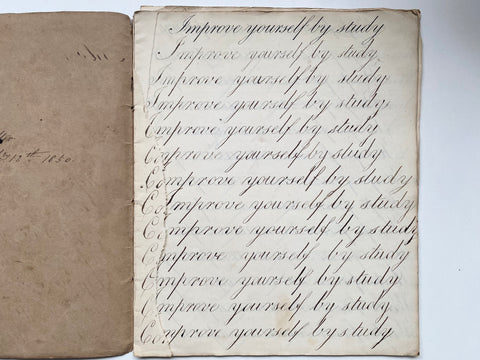 12th 1850.
Improve yourself by study
Improve yourself by study
Improve yourself by study
Improve yourself by study
Improve yourself by study
Improve yourself by study
Improve yourself by study
Improve yourself by study
Improve yourself by study
Improve yourself by study
Improve yourself by study
Improve yourself by study
Improve yourself by study